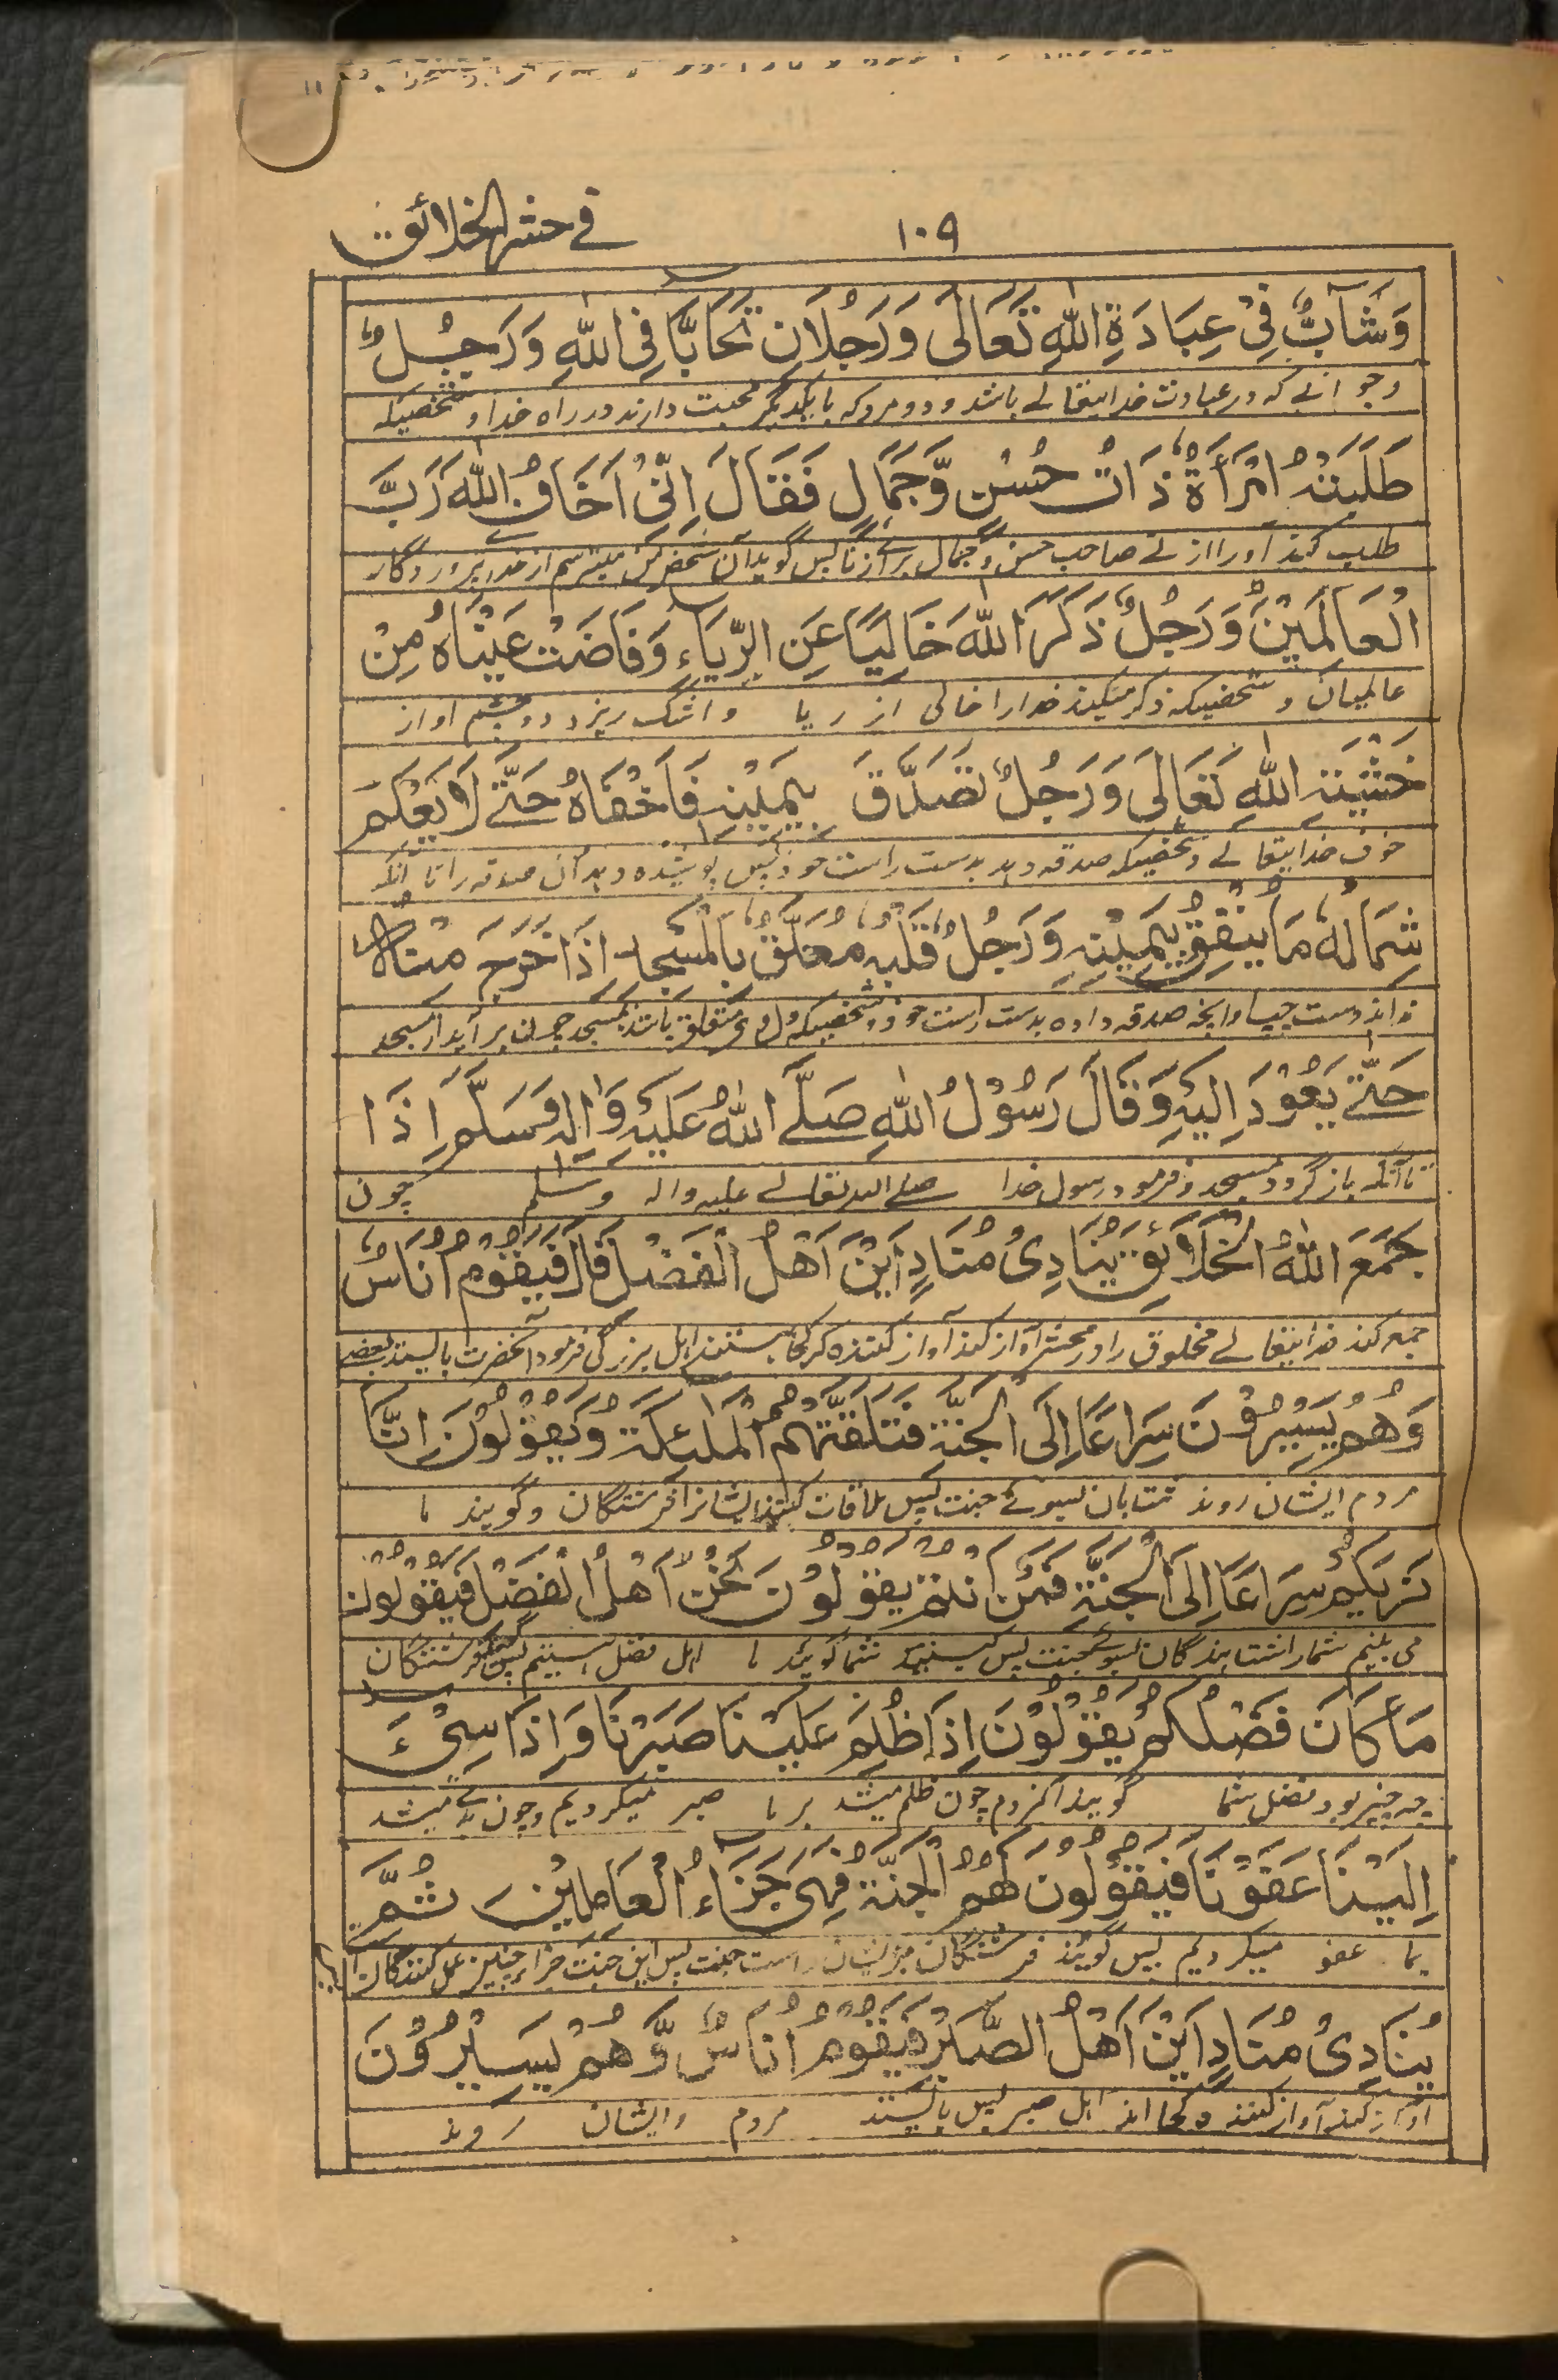 ١٠٩
في حشر الخلائق
وَشَآبٌّ فِیْ عِبَادَةِ اللّٰهِ تَعَالٰی وَرَجُلَانِ تَحَابَّا فِی اللّٰهِ وَرَجُلٌ
وجوانے که در عبادت خدایتعالے باشد و دو مرد که بایکدیگر محبت دارند در راه خدا و شخصیکه
طَلَبَتْهُ امْرَأَةٌ ذَاتُ حُسْنٍ وَّجَمَالٍ فَقَالَ اِنِّیْ اَخَافُ اللّٰهَ رَبَّ
طلب کند اورا زنے صاحب حسن و جمال برائے زنا پس گوید آن شخص من میترسم از خدا پروردگار
الْعَالَمِیْنَ وَرَجُلٌ ذَکَرَ اللّٰهَ خَالِیًا عَنِ الرِّیَاءِ وَفَاضَتْ عَیْنَاهُ مِنْ
عالمیان و شخصیکه ذکر میکند خدارا خالی از ریا و اشک ریزد دو چشم او از
خَشْیَتِهِ اللّٰهِ تَعَالٰی وَرَجُلٌ تَصَدَّقَ بِیَمِیْنِهٖ فَاَخْفَاهُ حَتّٰی لَا یَعْلَمَ
خوف خدایتعالے و شخصیکه صدقه دهد بدست راست خود پس پوشیده دهد آن صدقه را تا آنکه
شِمَالُهٗ مَا یُنْفِقُ بِیَمِیْنِهٖ وَرَجُلٌ قَلْبُهٗ مُعَلَّقٌ بِالْمَسْجِدِ اِذَا خَرَجَ مِنْهُ
نداند دست چپ او آنچه صدقه داده بدست راست خود و شخصیکه دل وی متعلق باشد بمسجد چون برآید از مسجد
حَتّٰی یَعُوْدَ اِلَیْهِ وَقَالَ رَسُوْلُ اللّٰهِ صَلَّی اللّٰهُ عَلَیْهِ وَاٰلِهٖ وَسَلَّمَ اِذَا
تا آنکه باز گردد بمسجد و فرمود رسول خدا صلے الله تعالے علیه واله وسلم چون
جَمَعَ اللّٰهُ الْخَلَائِقَ یُنَادِیْ مُنَادٍ اَیْنَ اَهْلُ الْفَضْلِ قَالَ فَیَقُوْمُ اُنَاسٌ
جمع کند خدایتعالے مخلوق را در محشر آواز کند آواز کننده که کجا هستند اهل بزرگی فرمود آنحضرت بایستند بعضے
وَهُمْ یَسِیْرُوْنَ سِرَاعًا اِلَی الْجَنَّةِ فَتَلَقَّتْهُمُ الْمَلٰئِکَةُ وَیَقُوْلُوْنَ اِنَّا
مردم ایشان روند شتابان بسوئے جنت پس ملاقات کنند ایشانرا فرشتگان و گویند ما
نَرٰیکُمْ سِرَاعًا اِلَی الْجَنَّةِ فَمَنْ اَنْتُمْ یَقُوْلُوْنَ نَحْنُ اَهْلُ الْفَضْلِ فَیَقُوْلُوْنَ
می بینیم شمارا شتابندگان بسوئے جنت پس کیستید شما گویند ما اهل فضل هستیم پس گویند فرشتگان
مَا کَانَ فَضْلُکُمْ یَقُوْلُوْنَ اِذَا ظُلِمَ عَلَیْنَا صَبَرْنَا وَاِذَا سِیْئَ
چه چیز بود فضل شما گویند آنمردم چون ظلم میشد بر ما صبر میکردیم و چون بدی میشد
اِلَیْنَا عَفَوْنَا فَیَقُوْلُوْنَ لَهُمُ الْجَنَّةُ فَهِیَ جَزَاءُ الْعَامِلِیْنَ ثُمَّ
بما عفو میکردیم پس گویند فرشتگان مر ایشان راست جنت پس این جنت جزاء چنین عمل کنندگان
یُنَادِیْ مُنَادٍ اَیْنَ اَهْلُ الصَّبْرِ فَیَقُوْمُ اُنَاسٌ وَّهُمْ یَسِیْرُوْنَ
آواز کند آواز کننده کجا اند اهل صبر پس بایستند مردم و ایشان روند